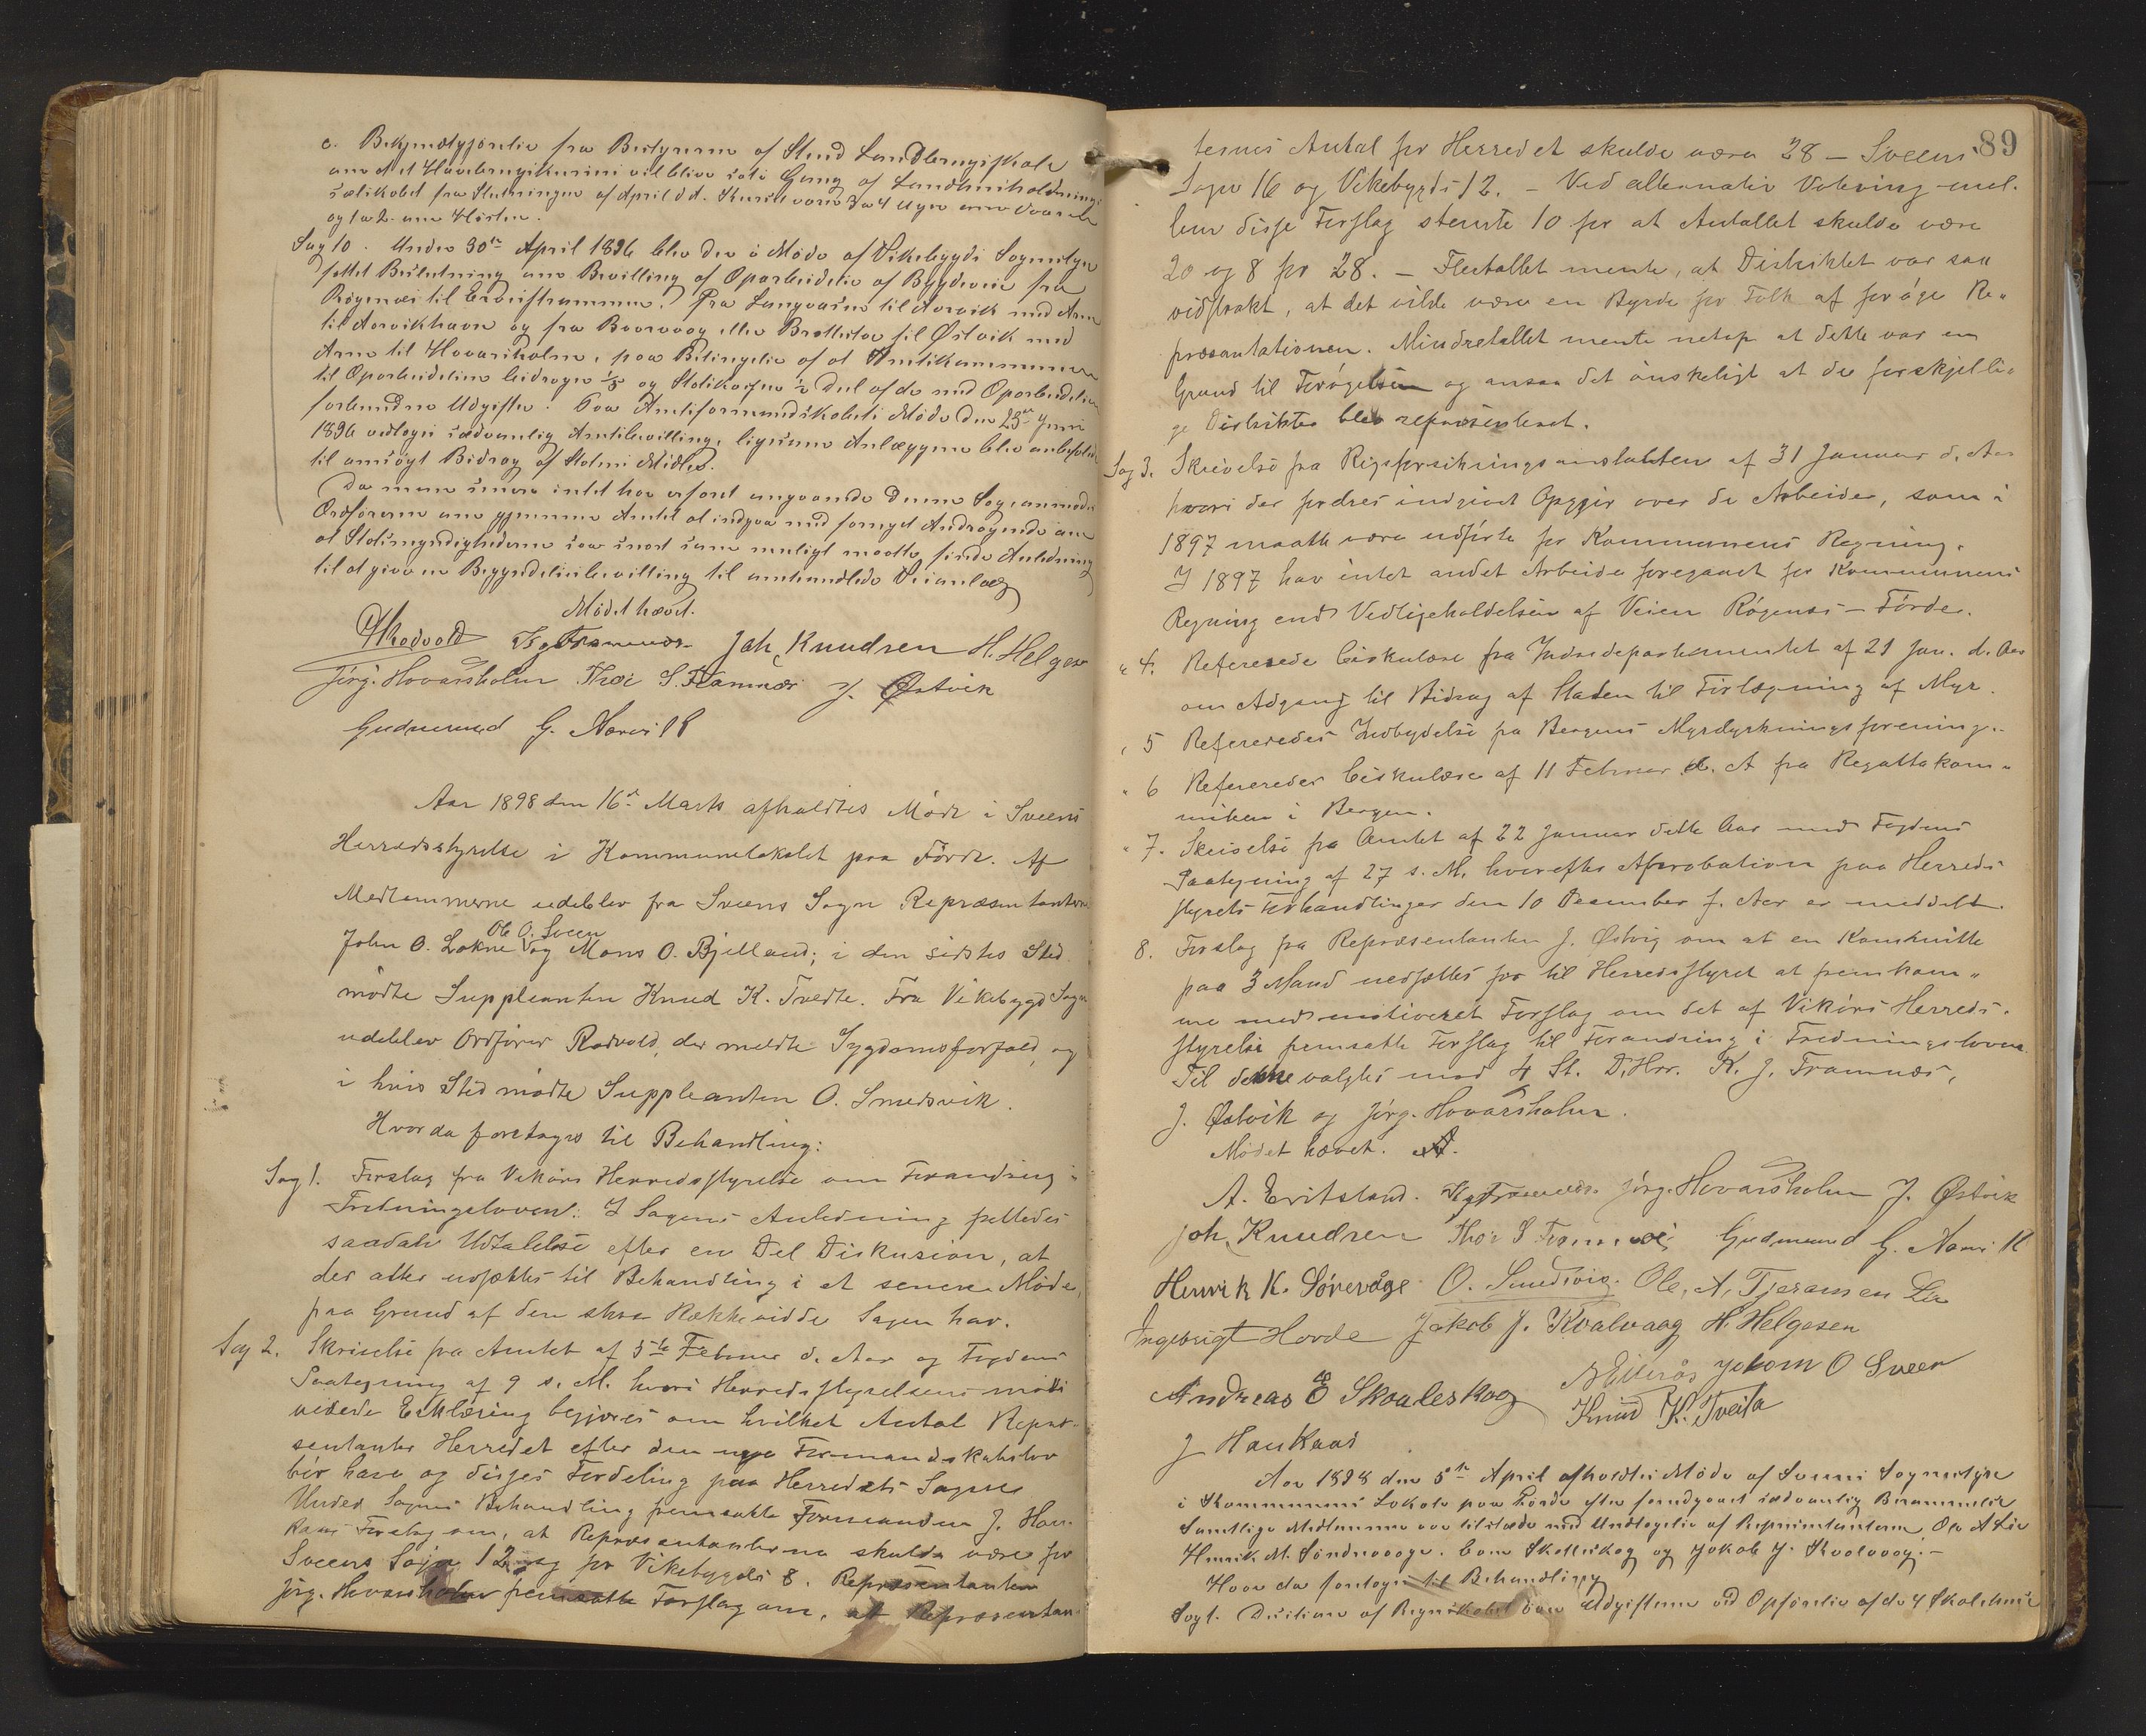 c. Bekjendtgjørelse fra Bestyreren af Stend Landbrugsskole
om at et Havebrugskursus vil blive sat i Gang af Landhusholdnings-
selskabet fra Slutningen af April d. A. Kurset varer 3 a 4 Uger om Vaaren
og 1 a 2 om Høsten.
Sag 10. Under 30te April 1896 blev der i Møde af Vikebygds Sognestyre
fattet Beslutning om Bevilling af Oparbeidelse af Bygdeveie fra
Røgenæs til Ervisstrømmen. Fra Langvasen til Aarvik med Arm
til Aarvikhavn og fra Børøvaag eller Brattestø til Østvik med
Arm til Hovarsholm, paa Betingelse af at Amtskommunen
til Oparbeidelsen bidrager 1/3 og Statskassen 1/2 Del af de med Oparbeidelsen
forbundne Udgifter. Paa Amtsformandskabets Møde den 25de Juni
1896 vedtoges sædvanlig Amtsbevilling, ligesom Anlæggene blev anbefalet
til ansøgt Bidrag af Statens Midler.
Da man senere intet har erfaret angaaende denne Sag, anmodes
Ordføreren om gjennem Amtet at indgaa med fornyet Andragende om
at Statsmyndighederne saa snart som muligt maatte finde Anledning
til at give en Begyndelsesbevilling til omhandlede Veianlæg
Mødet hævet.
Rødvold K J Framnæs Joh, Knudsen H. Helgesen
Jørg. Hovarsholm Thor S. Framnæs J. Østvik
Gudmund G. Nævik
Aar 1898 den 16de Marts afholdtes Møde i Sveens
Herredsstyrelse i Kommunelokalet paa Førde. Af
Medlemmerne udeblev fra Sveens Sogn Repræsentanterne
Ole O. Sveen
John O. Løkne og Mons O. Bjelland; i den sidstes Sted
mødte Suppleanten Knud K. Tvedte. Fra Vikebygd Sogn
udeblev Ordfører Rødvold, der meldte Sygdomsforfald, og
i hvis Sted mødte Suppleanten O. Smedsvik.
Hvor da foretages til Behandling:
Sag 1. Forslag fra Vikørs Herredsstyrelse om Forandring i
Fredningsloven: I Sagens Anledning fattedes
saadan Udtalelse efter en Del Diskusion, at
der atter udsættes til Behandling i et senere Møde,
paa Grund af den store Rækkevidde Sagen har.
Sag 2. Skrivelse fra Amtet af 5te Februar d. Aar og Fogdens
Paategning af 9 s. M. hvori Herredsstyrelsens moti
verede Erklæring begjæres om hvilket Antal Repræ-
sentanter Herredet efter den nye Formandskabslov
bør have og disses Fordeling paa Herredets Sogne
Under Sagens Behandling fremsatte Formanden J. Hau-
kaas Forslag om, at Repræsentanterne skulde være for
Sveens Sogn 12 og for Vikebygds 8. Repræsentanten
Jørg. Hovarsholm fremsatte Forslag om, at Repræsentan-
89
ternes Antal for Herredet skulde være 28 – Sveens
Sogn 16 og Vikebygds 12. – Ved alternativ Votering mel-
lem disse Forslag stemte 10 for at Antallet skulde være
20 og 8 for 28. – Flertallet mente, at Distriktet var saa
vidstrakt, at det vilde være en Byrde for Folk at forøge Re-
præsentationen. Mindretallet mente netop at dette var en
Grund til Forøgelsen og ansaa det ønskeligt at de forskjelli-
ge Distrikter blev repræsenteret.
Sag 3. Skrivelse fra Rigsforsikringsanstalten af 31 Januar d. Aar
hvori der fordres indgivet Opgjør over de Arbeider, som i
1897 maatte være udførte for Kommunens Regning.
I 1897 har intet andet Arbeide foregaaet for Kommunens
Regning end Vedligeholdelsen af Veien Røgenæs – Førde.
" 4. Refererede Cirkulære fra Indredepartementet af 21 Jan. d. Aar
om Adgang til Bidrag af Staten til Tørlægning af Myr.
" 5 Refereredes Indbydelse fra Bergens Myrdyrkningsforening.
" 6 Refereredes Cirkulære af 11 Februar d. A fra Regattakom-
miteen i Bergen.
" 7. Skrivelse fra Amtet af 22 Januar dette Aar med Fogdens
Paategning af 27 s. M. hvorefter Approbation paa Herreds
styrets Forhandlinger den 10 Desember f. Aar er meddelt.
8. Forslag fra Repræsentanten J. Østvig om at en Komite
paa 3 Mand nedsættes for til Herredsstyret at fremkom-
me med motiveret Forslag om det af Vikørs Herreds-
styrelse fremsatte Forslag til Forandring i Fredningsloven.
Til denne valgtes med 4 St. D'Hrr. K. J. Framnæs,
J. Østvik og Jørg. Hovarsholm.
Mødet hævet.
A. Eritsland. K J Framnæs Jørg. Hovarsholm J. Østvik
Joh, Knudsen Thor S Framnæs Gudmund G. Nævik
Henrik K. Sørevåge O. Smedsvig. Ole, A, Tjeransen Lie
Ingebrigt Horde Jakob J. Kvalvaag H. Helgesen
Andreas E Skoaleskog Johan O Sveen
Knud K. Tveita
J Haukaas
Aar 1898 den 5te April afholdtes Møde af Sveens Sognestyre
i Kommunens Lokale paa Førde efter forudgaaet sædvanlig Berammelse
Samtlige Medlemmer var tilstæde med Undtagelse af Repræsentanterne Ole A Lie
Henrik M. Søndrevaage. Skolleskog og Jakob J. Kvalvaag. –
Hvor da foretoges til Behandling
Sag 1. Decision af Regnskabet over Udgifterne ved Opførelse af de 4 Skolehuse